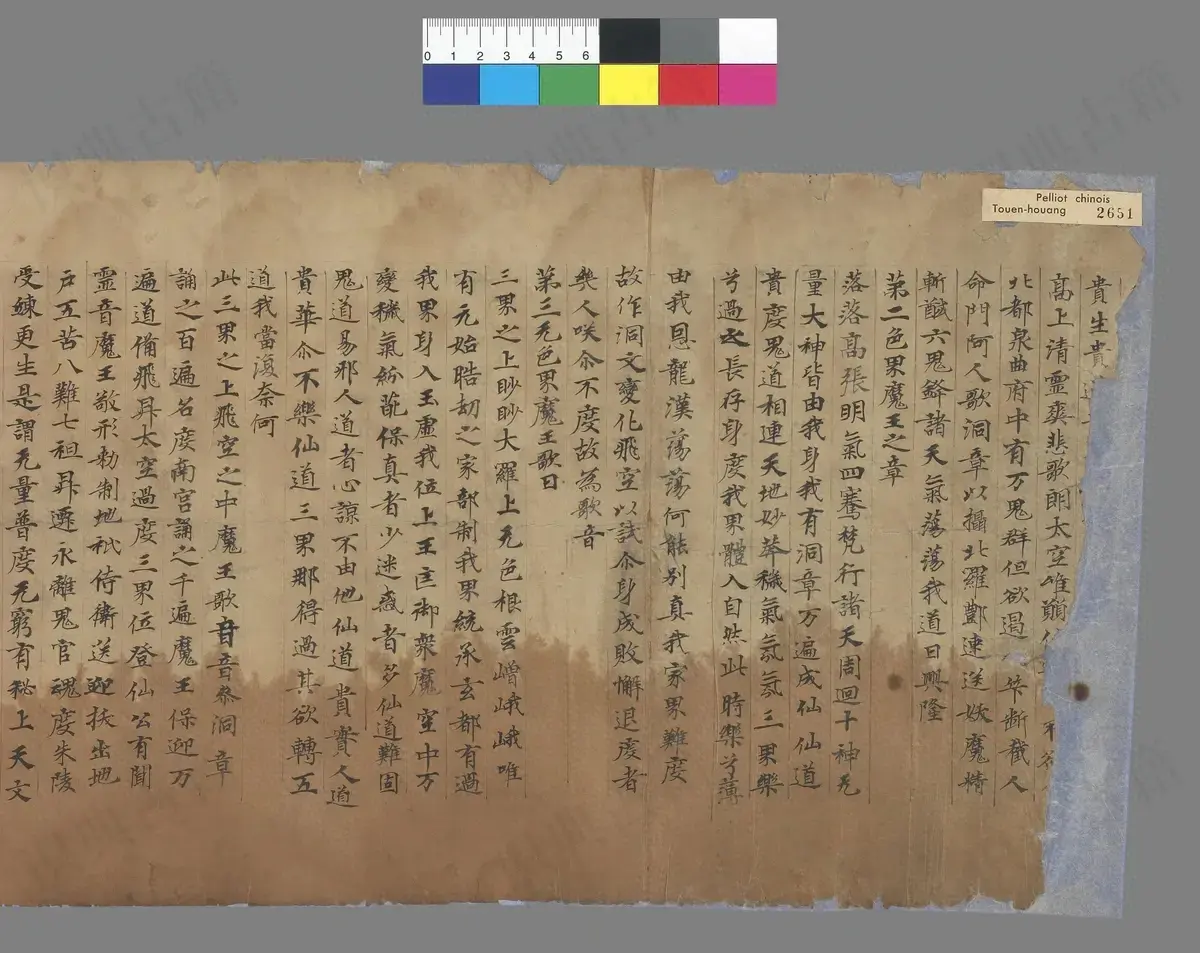 0 1 2 3 4 5 6
Pelliot chinois
Touen-houang 2651
貴生貴
高上清靈爽悲歌朗太空唯願
北都泉曲府中有万鬼群但欲遏 筭断截人
命門阿人歌洞章以攝北羅酆速送妖魔精
斬馘六鬼鋒諸天氣蕩蕩我道日興隆
苐二色界魔王之章
落落高張明氣四騫梵行諸天周迴十神无
量大神皆由我身我有洞章万遍成仙仙道
貴度鬼道相連天地妙莽穢氣氛氛三界樂
兮過之長存身度我界體入自然此時樂兮薄
由我恩龍漢蕩蕩何能別真我家界難度
故作洞文變化飛空以試尒身成敗懈退度者
㡬人咲尒不度故為歌音
苐三无色界魔王歌曰
三界之上眇眇大羅上无色根雲嶒峨峨唯
有元始晧劫之家部制我界統承玄都有過
我界身入玉虛我位上王匡御衆魔空中万
變穢氣紛葩保真者少迷惑者多仙道難固
鬼道易邪人道者心諒不由他仙道貴實人道
貴華尒不樂仙道三界那得過其欲轉五
道我當復奈何
此三界之上飛空之中魔王歌音音叅洞章
誦之百遍名度南宮誦之千遍魔王保迎万
遍道俻飛昇太空過度三界位登仙公有聞
靈音魔王敬形勑制地祇侍衛送迎扶出地
戸五苦八難七祖昇遷永離鬼官魂度朱陵
受鍊更生是謂无量普度无窮有秘上天文